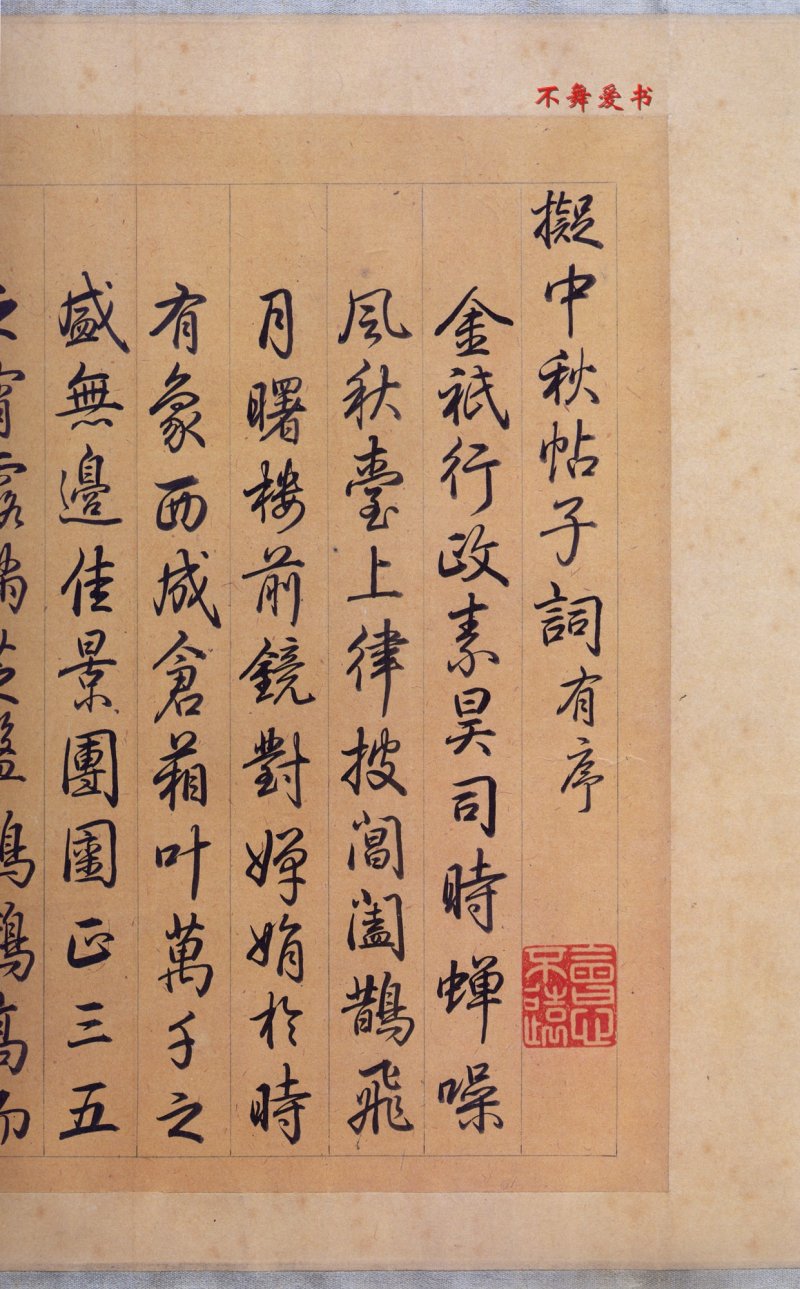 不舞爱书
擬中秋帖子詞有序
金祇行政素昊司時蝉噪
風秋臺上律披閶闔鵲飛
月曙楼前鏡對嬋娟於時
有象西成倉葙叶萬千之
盛無邊佳景團圞正三五
之宵露